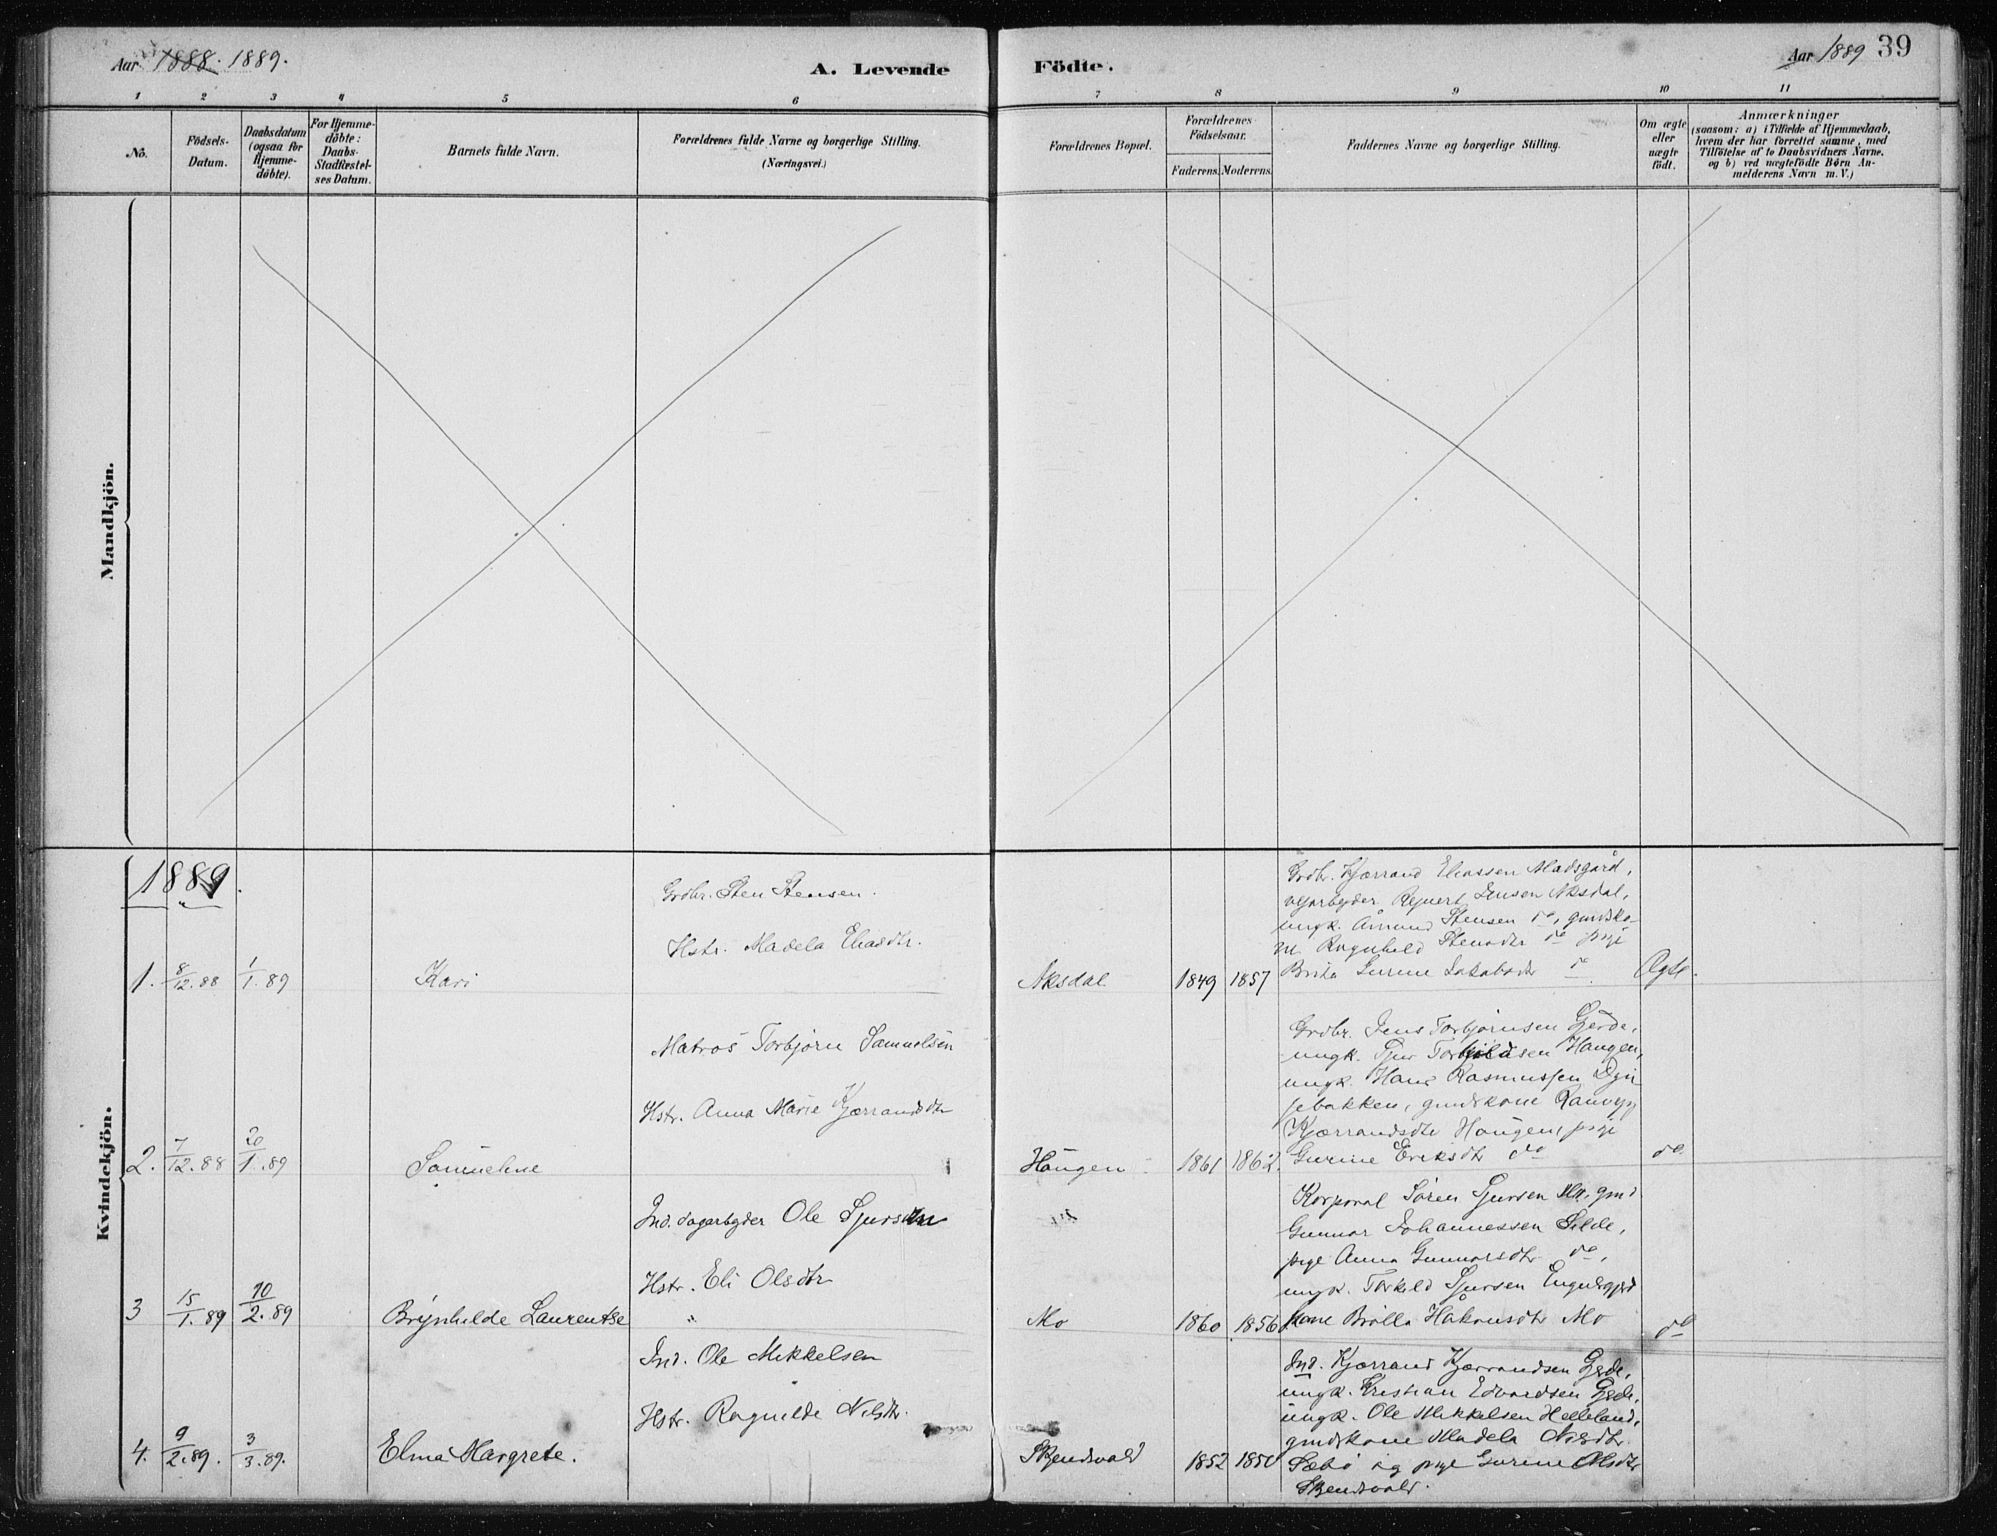 Aar 1888. 1889.
A. Levende Födte.
Aar 1889 39
1 2 3 4 5 6 7 8 9 10 11
No.
Födsels-
Datum.
Daabsdatum
(ogsaa for
Hjemme-
döbte).
For Hjemme-
döbte:
Daabs-
Stadfæstel-
ses Datum.
Barnets fulde Navn.
Forældrenes fulde Navne og borgerlige Stilling.
(Næringsvei.)
Forældrenes Bopæl.
Forældrenes
Födselsaar.
Faderens. Moderens.
Faddernes Navne og borgerlige Stilling.
Om ægte
eller
uægte
födt.
Anmærkninger
(saasom: a) i Tilfælde af Hjemmedaab,
hvem der har forrettet samme, med
Tilföielse af to Daabsvidners Navne.
og b) ved uægtefödte Børn An-
melderens Navn m. V.)
Mandkjön.
Kvindekjön.
1889.
1. 8/12.88 1/1.89 Kari
Grdbr. Sten Stensen.
Hstr. Madela Eliasdtr.
Aksdal 1849 1857
Grdbr. Kjærrand Eliassen Madsgård,
Rejnert Jensen Aksdal,
ungk. Åmund Stensen do, gmdsko-
ne Ragnhild Stensdtr do pige
Brita Gurine Jakobsdtr do.
Ægte.
2. 7/12.88 20/1.89 Samueline
Matros Torbjörn Samuelsen
Hstr. Anna Marie Kjærrandsdtr
Haugen 1861 1862.
Grdbr. Jens Torbjörnsen Gjerde,
ungk. Sjur Torkildsen Haugen,
ungk. Hans Rasmussen
gmdskone
Kjærrandsdtr Haugen, pige
Gurine Eriksdtr do
do
3 15/1.89 10/2.89 Brynhilde Laurentse
Ind. dagarbyder Ole Sjursen
Hstr. Eli Olsdtr
"
Mo 1860 1856
Korporal Sören Sjursen Mo, gmd
Gunnar Johannessen Silde,
pige Anna Gunnarsdtr do,
ungk. Torkild Sjursen
kone Håkonsdtr Mo
do
4. 9/2.89. 3/3.89. Elma Margrete.
Ind. Ole Mikkelsen
Hstr. Ragnilde Nilsdtr.
Skjendsvold 1852 1850
Ind. Kjærrand Kjærrandsen Gjerde,
ungk. Kristian Edvardsen Gjerde,
ungk. Ole Mikkelsen Helleland,
gmdskone Madela Nilsdtr.
Sæbö og pige Gurine Olsdtr
Skjendsvold.